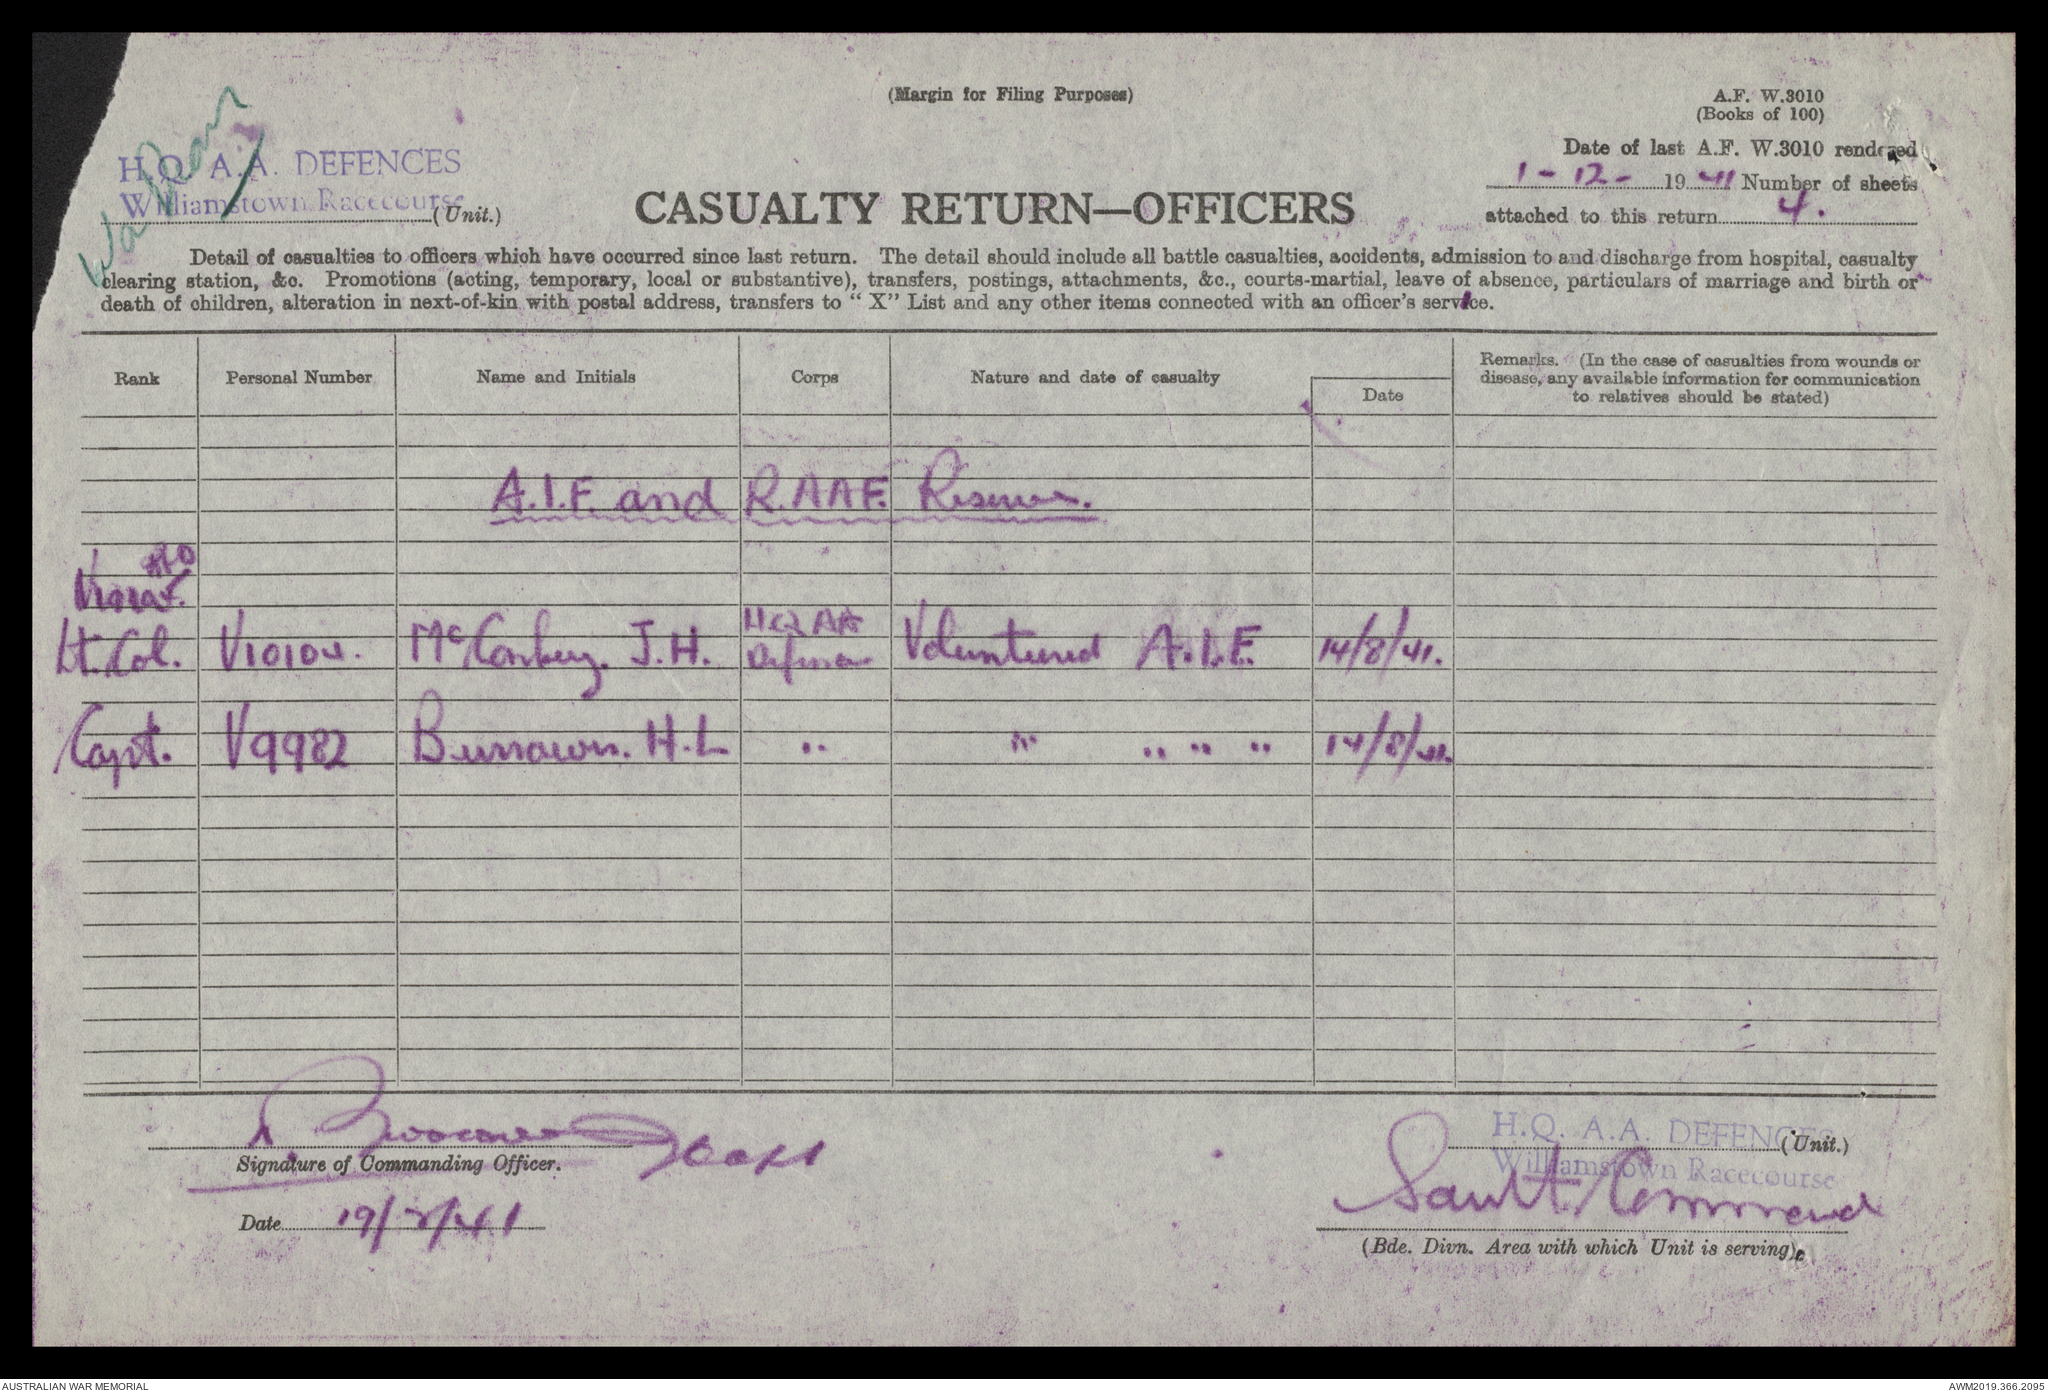 (Margin for Filing Purposes)
A.F. W.3010
(Books of 100)
War Diary
H.Q. A.A. DEFENCES
Williamstown Racecourse (Unit.)
CASUALTY RETURN—OFFICERS
Date of last A.F. W.3010 rendered
1-12-1941 Number of sheets
attached to this return 4.
Detail of casualties to officers which have occurred since last return. The detail should include all battle casualties, accidents, admission to and discharge from hospital, casualty
clearing station, &c. Promotions (acting, temporary, local or substantive), transfers, postings, attachments, &c., courts-martial, leave of absence, particulars of marriage and birth or
death of children, alteration in next-of-kin with postal address, transfers to "X" List and any other items connected with an officer's service.
Rank Personal Number Name and Initials Corps Nature and date of casualty Date Remarks. (In the case of casualties from wounds or
disease, any available information for communication
to relatives should be stated)
A.I.F. and R.A.A.F. Reserves.
Lt. Col. V10104. J.H. HQ AA Defences Voluntered A.I.F. 14/8/41.
Capt. V9982 H.L " " " " " 14/8/41.
Signature of Commanding Officer.
Date 19/ /41
H.Q. A.A. DEFENCES
(Unit.)
Williamstown Racecourse
Command
(Bde. Divn. Area with which Unit is serving)
AUSTRALIAN WAR MEMORIAL
AWM2019.366.2095